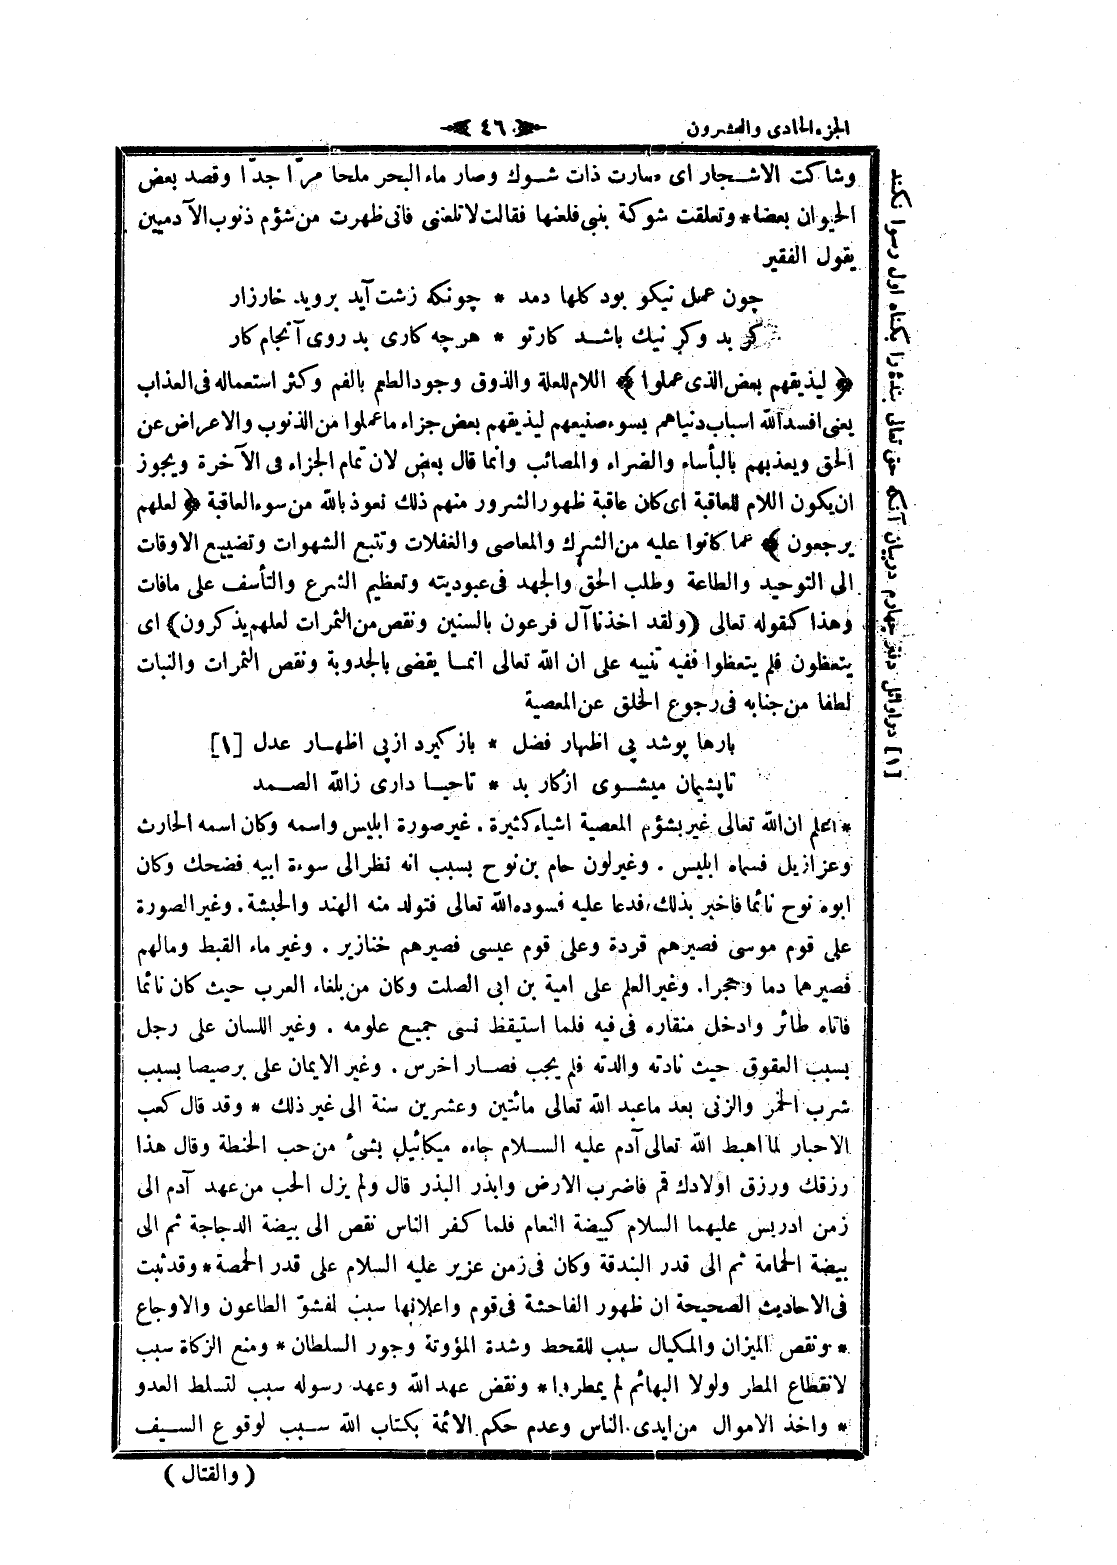 الجزء الحادى والعشرون
٤٦
وشاكت الاشجار اى صارت ذات شوك وصار ماء البحر ملحا مرّا جدّا وقصد بعض
الحيوان بعضا * وتعلقت شوكة بنبى فلعنها فقالت لاتلعنى فانى ظهرت من شؤم ذنوب الآدميين
يقول الفقير
چون عمل نيكو بود كلها دمد * چونكه زشت آيد برويد خارزار
كر بد وكر نيك باشد كارتو * هرچه كارى بد روى آنجام كار
﴿ ليذيقهم بعض الذى عملوا ﴾ اللام للعلة والذوق وجود الطعم بالفم وكثر استعماله فى العذاب
يعنى افسد الله اسباب دنياهم بسوء صنيعهم ليذيقهم بعض جزاء ماعملوا من الذنوب والاعراض عن
الحق ويعذبهم بالبأساء والضراء والمصائب وانما قال بعض لان تمام الجزاء فى الآخرة ويجوز
ان يكون اللام للعاقبة اى كان عاقبة ظهور الشرور منهم ذلك نعوذ بالله من سوء العاقبة ﴿ لعلهم
يرجعون ﴾ عما كانوا عليه من الشرك والمعاصى والغفلات وتتبع الشهوات وتضييع الاوقات
الى التوحيد والطاعة وطلب الحق والجهد فى عبوديته وتعظيم الشرع والتأسف على مافات
وهذا كقوله تعالى (ولقد اخذنا آل فرعون بالسنين ونقص من الثمرات لعلهم يذكرون) اى
يتعظون فلم يتعظوا ففيه تنبيه على ان الله تعالى انما يقضى بالجدوبة ونقص الثمرات والنبات
لطفا من جنابه فى رجوع الخلق عن المعصية
بارها پوشد پى اظهار فضل * باز كيرد ازپى اظهار عدل [١]
تاپشيمان ميشوى ازكار بد * تاحيا دارى زالله الصمد
* اعلم ان الله تعالى غير بشؤم المعصية اشياء كثيرة . غير صورة ابليس واسمه وكان اسمه الحارث
وعزازيل فسماه ابليس . وغير لون حام بن نوح بسبب انه نظر الى سوءة ابيه فضحك وكان
ابوه نوح نائما فاخبر بذلك فدعا عليه فسوده الله تعالى فتولد منه الهند والحبشة . وغير الصورة
على قوم موسى فصيرهم قردة وعلى قوم عيسى فصيرهم خنازير . وغير ماء القبط ومالهم
فصيرهما دما وحجرا . وغير العلم على امية بن ابى الصلت وكان من بلغاء العرب حيث كان نائما
فاتاه طائر وادخل منقاره فى فيه فلما استيقظ نسى جميع علومه . وغير اللسان على رجل
بسبب العقوق حيث نادته والدته فلم يجب فصار اخرس . وغير الايمان على برصيصا بسبب
شرب الخمر والزنى بعد ماعبد الله تعالى مائتين وعشرين سنة الى غير ذلك * وقد قال كعب
الاحبار لما اهبط الله تعالى آدم عليه السلام جاءه ميكائيل بشئ من حب الحنطة وقال هذا
رزقك ورزق اولادك قم فاضرب الارض وابذر البذر قال ولم يزل الحب من عهد آدم الى
زمن ادريس عليهما السلام كبيضة النعام فلما كفر الناس نقص الى بيضة الدجاجة ثم الى
بيضة الحمامة ثم الى قدر البندقة وكان فى زمن عزير عليه السلام على قدر الحمصة * وقد ثبت
فى الاحاديث الصحيحة ان ظهور الفاحشة فى قوم واعلانها سبب لفشو الطاعون والاوجاع
* ونقص الميزان والمكيال سبب للقحط وشدة المؤونة وجور السلطان * ومنع الزكاة سبب
لانقطاع المطر ولولا البهائم لم يمطروا * ونقض عهد الله وعهد رسوله سبب لتسلط العدو
* واخذ الاموال من ايدى الناس وعدم حكم الائمة بكتاب الله سبب لوقوع السيف
( والقتال )
[١] دراوائل دفتر چهارم دربيان آنكه حق تعالى بنده را بكناه اول رسوا نكند